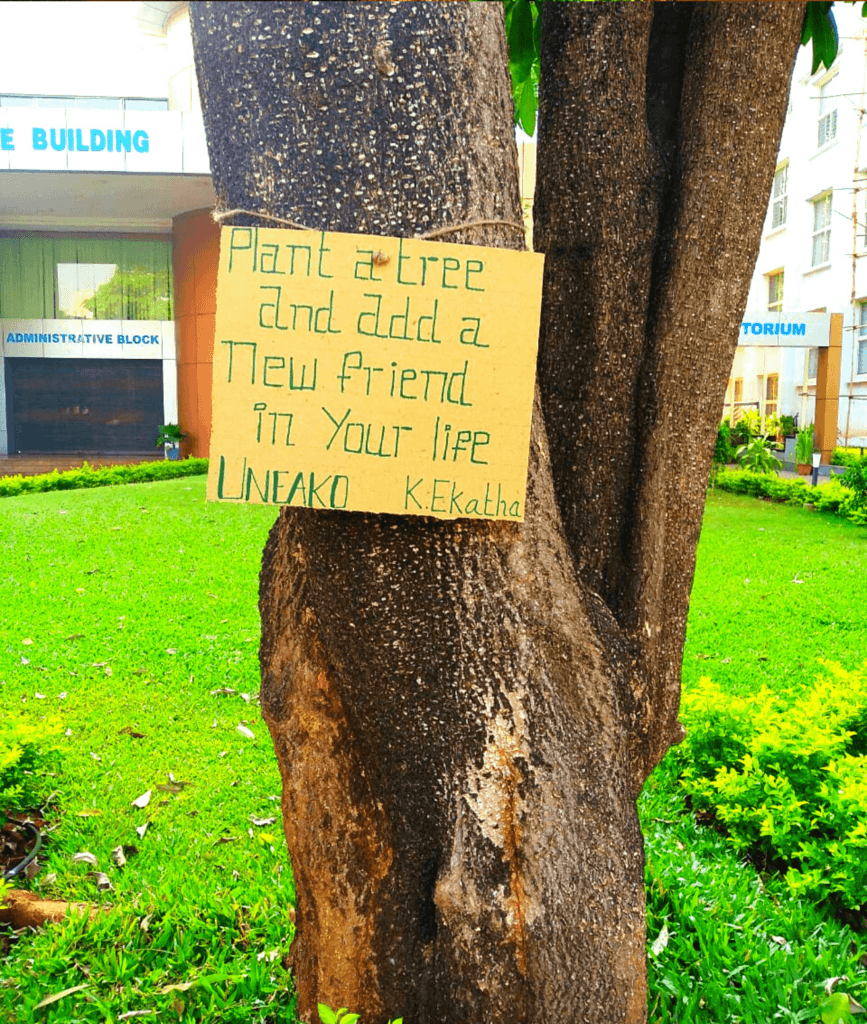 E BUILDING
ADMINISTRATIVE BLOCK
TORIUM
Plant a tree
and add a
new friend
in Your life
UNEAKO K.Ekatha